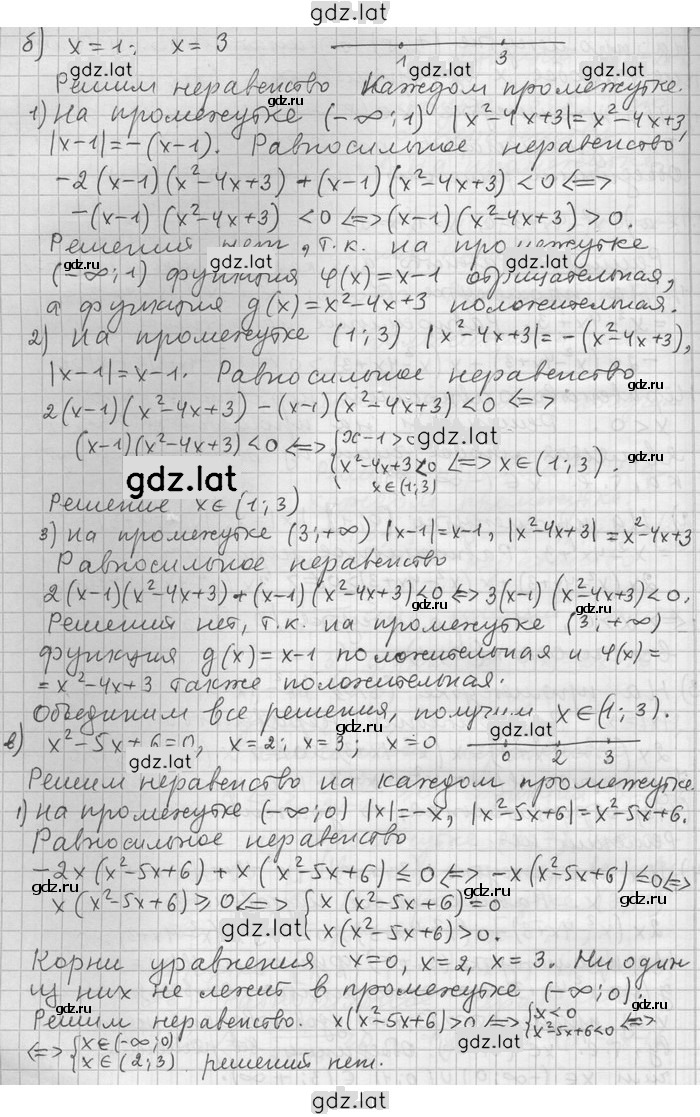 gdz.lat
б) x=1; x=3 1 3
Решим неравенство каждом промежутке.
1) На промежутке (-∞;1) |x²-4x+3|=x²-4x+3
|x-1|=-(x-1). Равносильное неравенство
-2(x-1)(x²-4x+3)+(x-1)(x²-4x+3)<0 <=>
-(x-1)(x²-4x+3)<0 <=> (x-1)(x²-4x+3)>0.
Решений нет, т.к. на промежутке
(-∞;1) функция φ(x)=x-1 отрицательная,
а функция g(x)=x²-4x+3 положительная.
2) На промежутке (1;3) |x²-4x+3|=-(x²-4x+3),
|x-1|=x-1. Равносильное неравенство
2(x-1)(x²-4x+3)-(x-1)(x²-4x+3)<0 <=>
(x-1)(x²-4x+3)<0 <=> {x-1>0
{x²-4x+3<0 <=> x∈(1;3).
x∈(1;3)
gdz.lat
Решение x∈(1;3)
3) На промежутке (3;+∞) |x-1|=x-1, |x²-4x+3|=x²-4x+3
Равносильное неравенство
2(x-1)(x²-4x+3)+(x-1)(x²-4x+3)<0 <=> 3(x-1)(x²-4x+3)<0.
Решений нет, т.к. на промежутке (3;+∞)
функция g(x)=x-1 положительная и φ(x)=
=x²-4x+3 также положительная.
Объединим все решения, получим x∈(1;3).
в) x²-5x+6=0, x=2; x=3; x=0 0 2 3
Решим неравенство на каждом промежутке.
1) На промежутке (-∞;0) |x|=-x, |x²-5x+6|=x²-5x+6.
Равносильное неравенство
-2x(x²-5x+6)+x(x²-5x+6)≤0 <=> -x(x²-5x+6)≤0 <=>
x(x²-5x+6)≥0 <=> {x(x²-5x+6)=0
{x(x²-5x+6)>0.
Корни уравнения x=0, x=2, x=3. Ни один
из них не лежит в промежутке (-∞;0).
Решим неравенство. x(x²-5x+6)>0 <=> {x<0
{x²-5x+6<0 <=>
<=> {x∈(-∞;0)
{x∈(2;3) решений нет.
gdz.lat